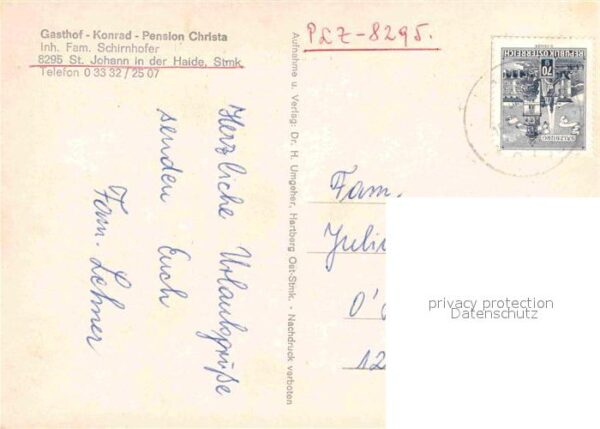 Gasthof - Konrad - Pension Christa
Inh. Fam. Schirnhofer
8295 St. Johann in der Haide, Stmk.
Telefon 0 33 32 / 25 07
PLZ-8295.
Herzliche Urlaubsgrüße
senden Euch
Fam. Lehner
Aufnahme u. Verlag: Dr. H. Umgeher, Hartberg Ost-Stmk. - Nachdruck verboten
REPUBLIK ÖSTERREICH
70
SALZBURG
Fam.
O'
12
privacy protection
Datenschutz